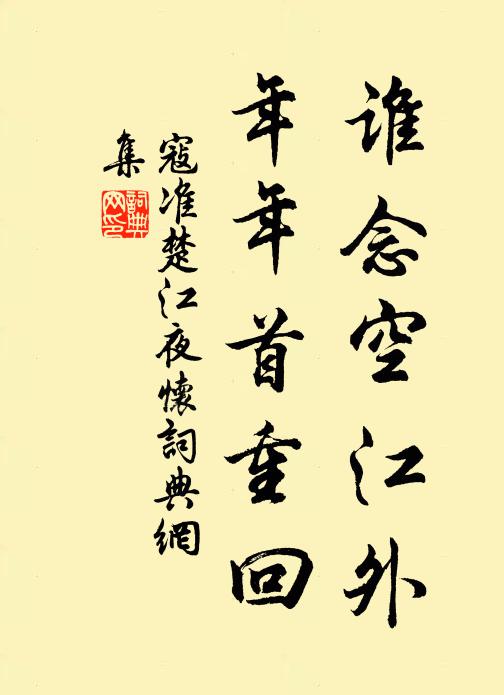 谁念空江外
年年首重回
寇准楚江夜懷詞典網
集
詞典
网印